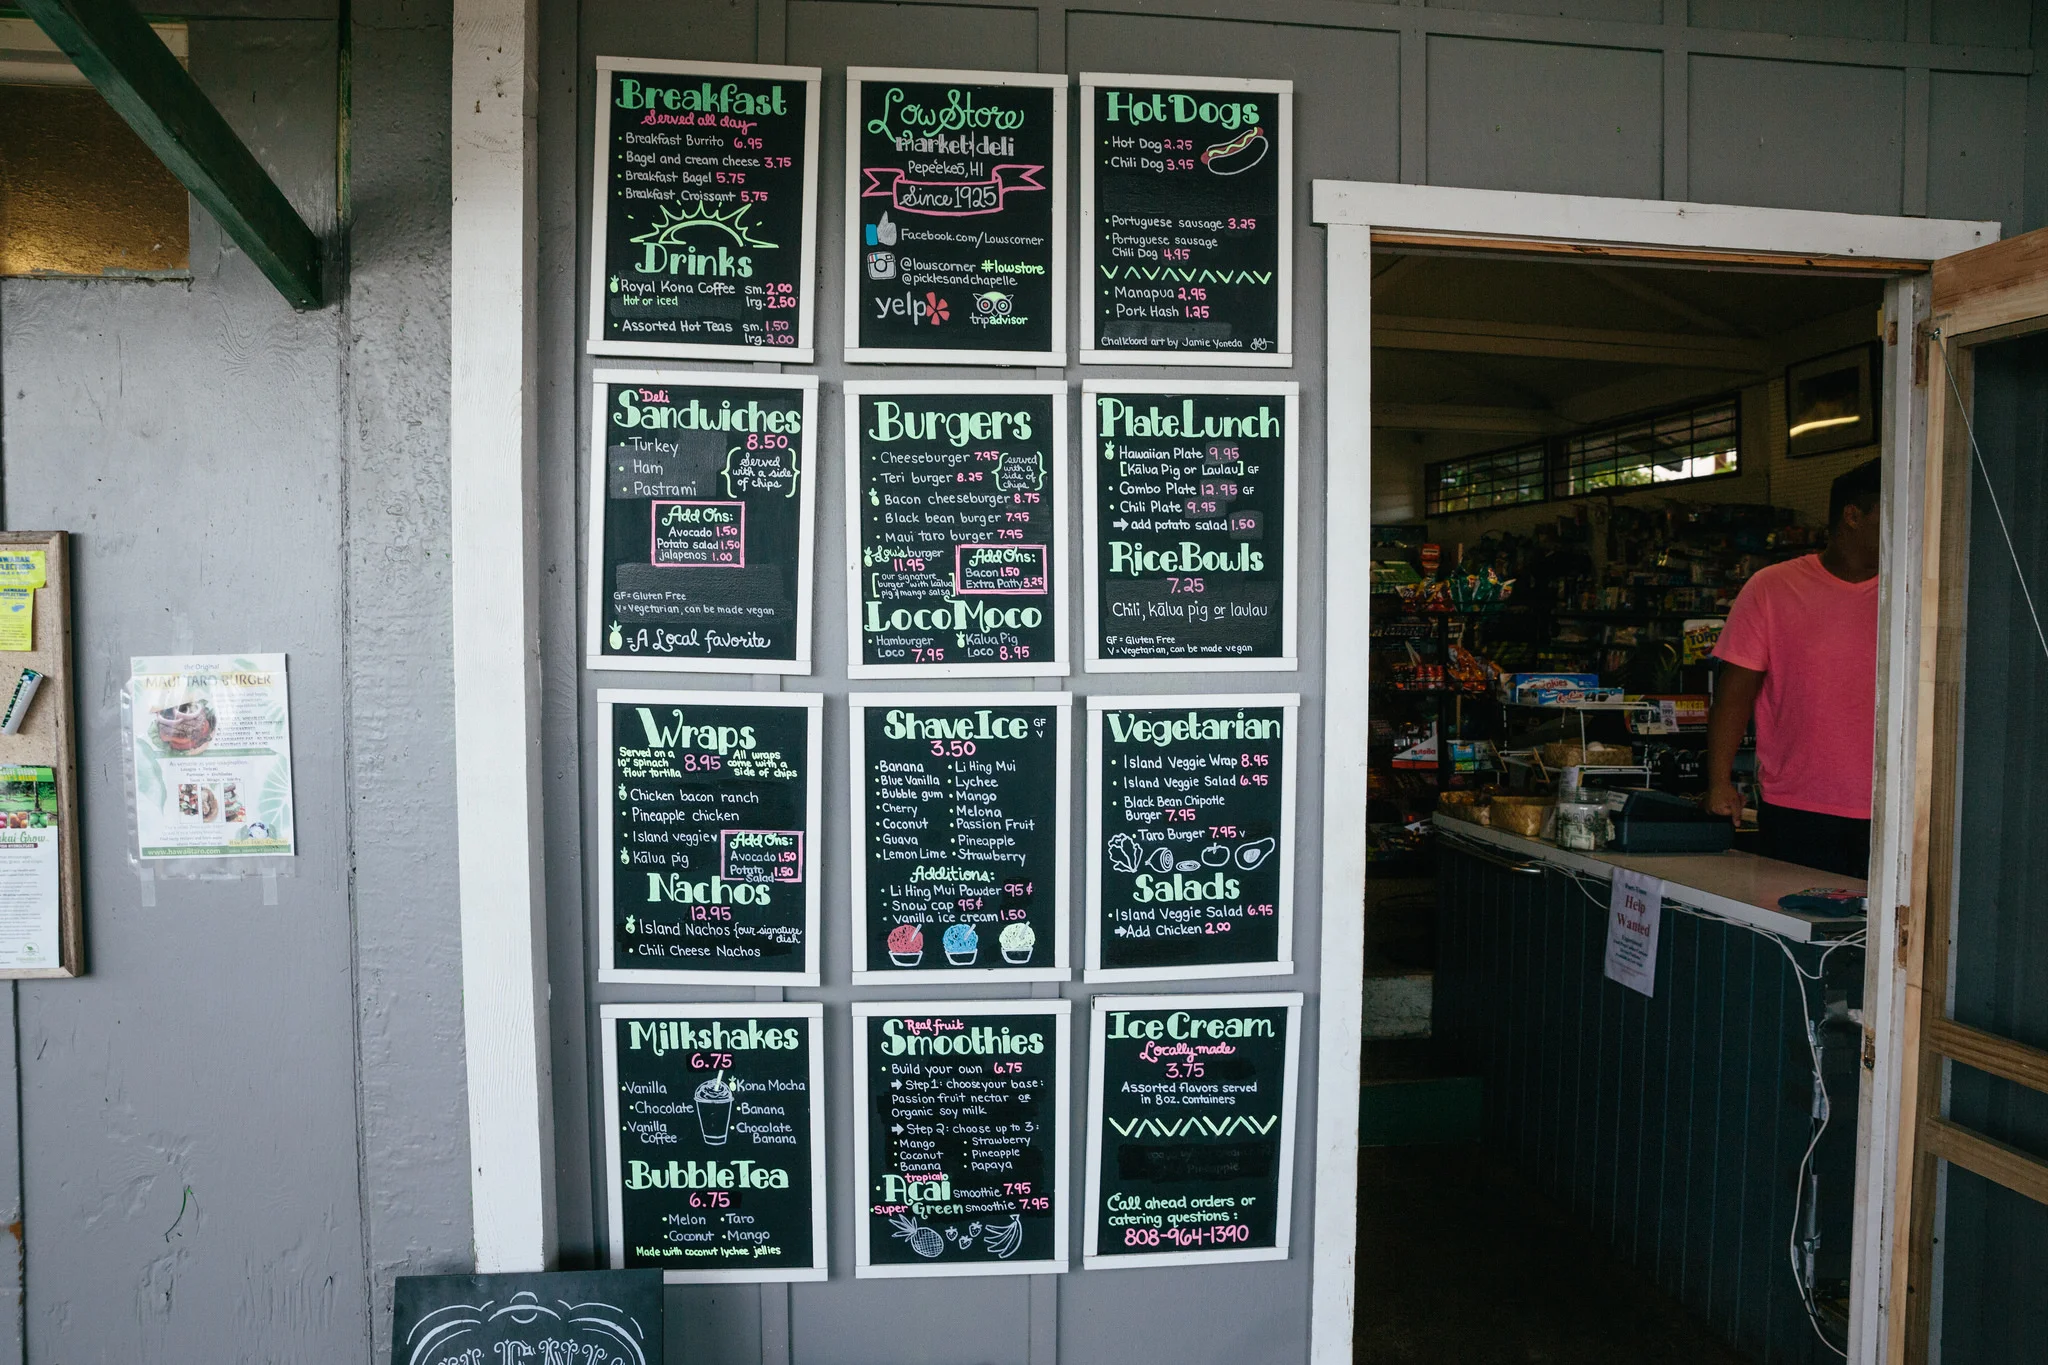 Breakfast
Served all day
• Breakfast Burrito 6.95
• Bagel and cream cheese 3.75
• Breakfast Bagel 5.75
• Breakfast Croissant 5.75
Drinks
Royal Kona Coffee sm. 2.00
Hot or iced lrg. 2.50
• Assorted Hot Teas sm. 1.50
lrg. 2.00
Low Store
market|deli
Pepe'ekeō, HI
Since 1925
Facebook.com/Lowscorner
@lowscorner #lowstore
@picklesandchapelle
yelp
tripadvisor
Hot Dogs
• Hot Dog 2.25
• Chili Dog 3.95
• Portuguese sausage 3.25
• Portuguese sausage
Chili Dog 4.95
• Manapua 2.95
• Pork Hash 1.25
Chalkbord art by Jamie Yoneda
Deli
Sandwiches
• Turkey 8.50
• Ham
• Pastrami
{Served
with a side
of chips}
Add Ons:
Avocado 1.50
Potato salad 1.50
jalapenos 1.00
GF = Gluten Free
V = Vegetarian, can be made vegan
= A Local favorite
Burgers
• Cheeseburger 7.95
• Teri burger 8.25
{served
with a
side of
chips}
Bacon cheeseburger 8.75
• Black bean burger 7.95
• Maui taro burger 7.95
Low's burger
11.95
[our signature
burger with kalua
pig & mango salsa]
Add Ons:
Bacon 1.50
Extra Patty 3.25
Loco Moco
• Hamburger
Loco 7.95
Kālua Pig
Loco 8.95
Plate Lunch
Hawaiian Plate 9.95
[Kālua Pig or Laulau] GF
• Combo Plate 12.95 GF
• Chili Plate 9.95
➡ add potato salad 1.50
Rice Bowls
7.25
Chili, kālua pig or laulau
GF = Gluten Free
V = Vegetarian, can be made vegan
Wraps
Served on a
10" spinach
flour tortilla
8.95
All wraps
come with a
side of chips
Chicken bacon ranch
• Pineapple chicken
• Island veggie v
Kālua pig
Add Ons:
Avocado 1.50
Potato
Salad 1.50
Nachos
12.95
Island Nachos {our signature
dish
• Chili Cheese Nachos
Shave Ice GF
V
3.50
• Banana
• Blue Vanilla
• Bubble gum
• Cherry
• Coconut
• Guava
• Lemon Lime
• Li Hing Mui
• Lychee
• Mango
• Melona
• Passion Fruit
• Pineapple
• Strawberry
Additions:
• Li Hing Mui Powder 95¢
• Snow cap 95¢
• Vanilla ice cream 1.50
Vegetarian
• Island Veggie Wrap 8.95
• Island Veggie Salad 6.95
• Black Bean Chipotle
Burger 7.95
• Taro Burger 7.95 v
Salads
• Island Veggie Salad 6.95
➡ Add Chicken 2.00
Milkshakes
6.75
• Vanilla
• Chocolate
• Vanilla
Coffee
Kona Mocha
• Banana
• Chocolate
Banana
Bubble Tea
6.75
• Melon • Taro
• Coconut • Mango
Made with coconut lychee jellies
Real fruit
Smoothies
• Build your own 6.75
➡ Step 1: choose your base:
Passion fruit nectar OR
Organic soy milk
➡ Step 2: choose up to 3:
• Mango • Strawberry
• Coconut • Pineapple
• Banana • Papaya
tropical
• Acai smoothie 7.95
• super Green smoothie 7.95
Ice Cream
Locally made
3.75
Assorted flavors served
in 8oz. containers
Call ahead orders or
catering questions:
808-964-1390
the Original
MAUI TARO BURGER
www.hawaiitaro.com
Help
Wanted
nutella